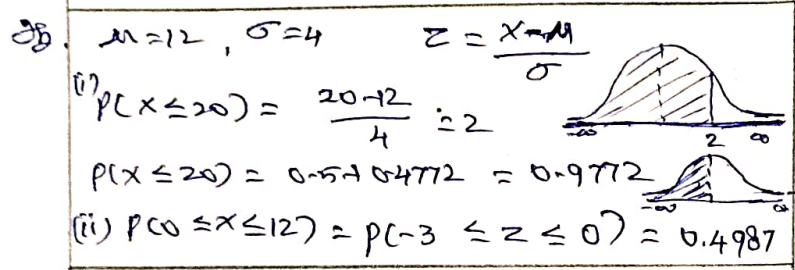 2b. μ=12, σ=4 z = X-μ/σ
(i) P(X≤20) = 20-12/4 = 2
-∞ 2 ∞
P(X≤20) = 0.5+0.4772 = 0.9772
-∞ ∞
(ii) P(0≤X≤12) = P(-3 ≤ z ≤ 0) = 0.4987